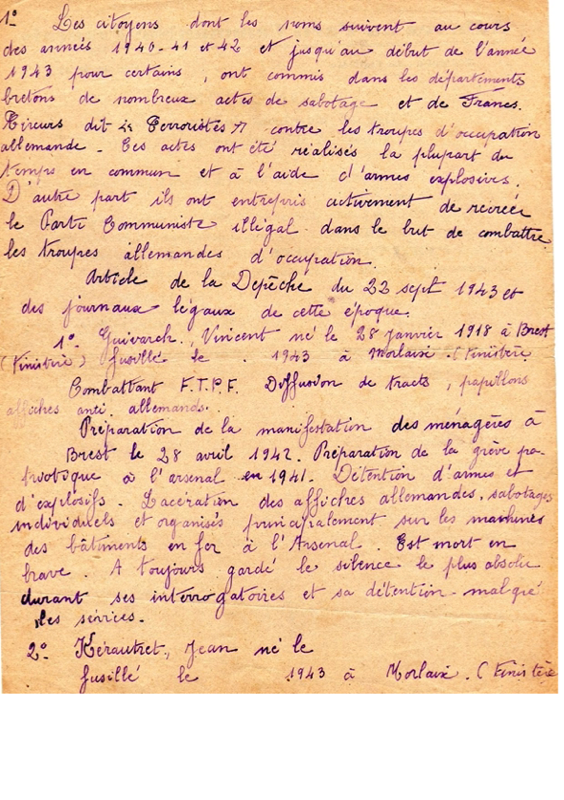 1º Les citoyens dont les noms suivent au cours
des annés 1940-41 et 42 et jusqu'au début de l'année
1943 pour certains, ont commis dans les départements
bretons de nombreux actes de sabotage et de Francs.
Tireurs dit « Terroristes » contre les troupes d'occupation
allemande - Ces actes ont été réalisés la plupart du
temps en commun et à l'aide d'armes explosives.
D'autre part ils ont entrepris activement de recréér
le Parti Communiste illégal dans le but de combattre
les troupes allemandes d'occupation.
Article de la Depêche du 22 sept 1943 et
des journaux légaux de cette époque.
1º Guivarch, Vincent né le 28 Janvier 1918 à Brest
(Finistère) fusillé le . 1943 à Morlaix. (Finistère
Combattant F.T.P.F. Diffusion de tracts, papillons
affiches anti allemands.
Préparation de la manifestation des ménagères à
Brest le 28 avril 1942. Préparation de la grève pa-
triotique à l'arsenal en 1941. Détention d'armes et
d'explosifs. Lacération des affiches allemandes, sabotages
individuels et organisés principalement sur les machines
des bâtiments en fer à l'Arsenal. Est mort en
brave. A toujours gardé le silence le plus absolu
durant ses interrogatoires et sa détention malgré
les sévices.
2º Kérautret, Jean né le
fusillé le 1943 à Morlaix. (Finistère